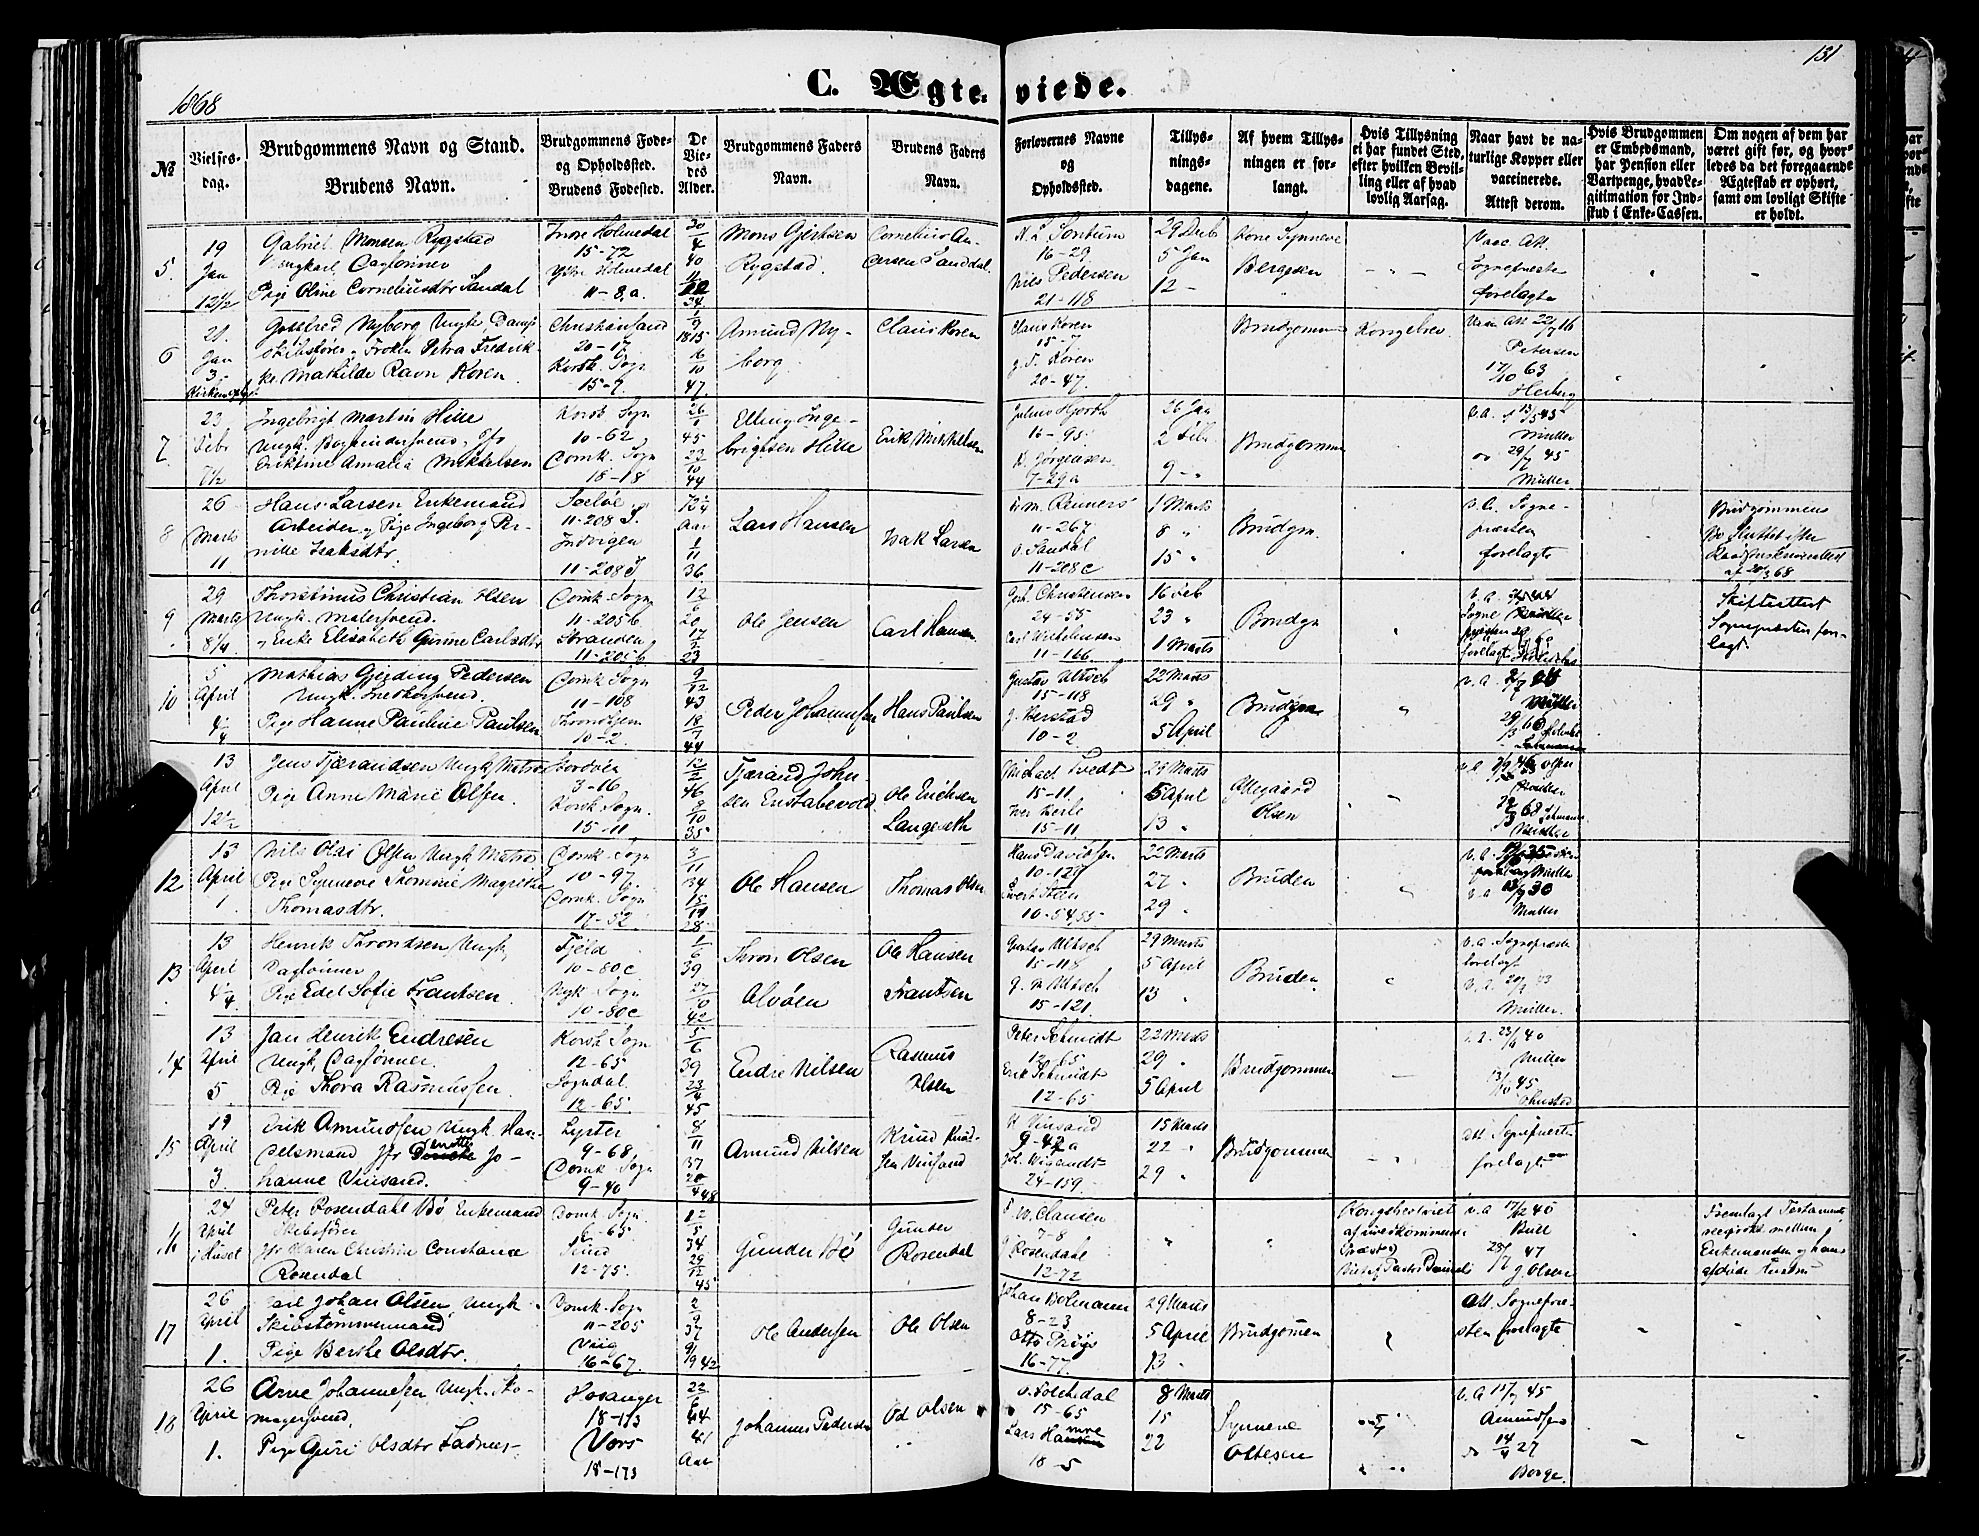 131
1868
C. Ægteviede.
№
Vielsesdag.
Brudgommens Navn og Stand.
Brudens Navn.
Brudgommens Føde-
og Opholdssted.
Brudens Fødested.
De
Vie-
des
Alder.
Brudgommens Faders
Navn.
Brudens Faders
Navn.
Forlovernes Navne
og
Opholdssted.
Tillys-
nings-
dagene.
Af hvem Tillys-
ningen er for-
langt.
Hvis Tillysning
ei har fundet Sted,
efter hvilken Bevil-
ling eller af hvad
lovlig Aarsag.
Naar havt de na-
turlige Kopper eller
vaccinerede.
Attest derom.
Hvis Brudgommen
er Embedsmand,
har Pension eller
Vartpenge, hvad Le-
gitimation for Ind-
skud i Enke-Cassen.
Om nogen af dem har
været gift før, og hvor-
ledes da det foregaaende
Ægteskab er ophørt,
samt om lovligt Skifte
er holdt.
5
19
Jan
12 1/2
Gabriel Monsen Rygstad
Ungkarl Daglønner
Pige Oline Corneliusdtr Sandal
Indre Holmedal
15-72
Ytre Holmedal
11-8.a.
Mons Gjertsen
Rygstad.
Cornelius An-
dersen Sanddal.
16-29
Nils Pedersen
21-118
29 Deb
5 Jan
12 -
Kone Synneve
Bergesen
Vacc. Att.
Sognepræste
forelagte
6
21
Jan
3
Gotfred Nyborg Ungk, Damp
skibsfører, Frøken Petra Fredrik-
ke Mathilde Ravn Koren
Christiansand
20-17
Korsk. Sogn
15-7
1/9
1815
16/10
47
Amund Ny-
borg
Claus Koren
Claus Koren
15-7
J. F. Koren
20-47
Brudgomm
Kongebrev
Vacc Att 22/7 16
Petersen
17/10 63
Herberg
7
23
Febr
7 1/2
Ingebrigt Martin Hille
Ungk. Bogbindersvend, Jfr
Eriktine Amalia Mikkelsen
Korsk Sogn
10-62
Domk. Sogn
18-18
26/1
45
23/10
44
Elling Inge-
brigtsen Hille
Erik Mikkelsen
Julius Hjorth
16-95
D. Jørgensen
7-29a
26 Jan
2 Feb
9 -
Brudgommen
v.a. 13/5 45
Müller
29/7 45
Müller
8
26
Marts
11
Hans Larsen Enkemand
Arbeider, Pige Ingeborg Per-
nille Isaksdtr.
11-208 I.
Indvigen
11-208 I
Aar
1/11
36
Lars Hansen
Isak Larsen
11-267
O. Sandal
11-208c
1 Marts
8 "
15 "
Brudgm.
v.a. Sogne-
præsten
forelagte
Brudgommens
Bo sluttet efter
af 20/3 68
9
29
Marts
8 1/4
Thorsinius Christian Olsen
Ungk. Malersvend.
Enke Elisabeth Gurine Carlsdtr
Domk. Sogn
11-205b
Stranden,
11-205b
12/6
20
17/2
23
Ole Jensen
Carl Hansen
Joh. Christensen
24-55
Carl Wilhelmsen
11-166
16 Feb
23 "
1 Marts
Brudgm
Skifteattest
Sognepræsten fore-
lagt.
10
5
April
4 1/4
Mathias Gjerding Pedersen
Ungk. Snedkersvend.
Pige Hanne Pauline Paulsen
Domk. Sogn
11-108
Throndhjem
10-2
9/12
43
18/7
44
Peder Johannesen
Hans Paulsen
Gustav Ultsch
15-118
J. Herstad
10-2
22 Marts
29 "
5 April
Brudgm
Müller
13
April
12 1/2
Jens Tjerandsen Ungk, Matros
Pige Anne Marie Olsen.
Stordøen
3-16
Korsk Sogn.
15-11
12/2
46
8/10
35
Tjerand John-
sen Enstabevold
Ole Erichsen
Langesæth
Michael Tvedt
15-11
Iver Herle
15-11
29 Marts
5 April
13 "
Allegaard
Olsen
12
13
April
1.
Nils Olai Olsen, Ungk Matros
Pige Synneve Thomine Magrethe
Thomasdtr.
Domk. Sogn
10-97
Domk. Sogn
17-52
3/11
34
15/11
28
Ole Hansen
Thomas Olsen
Hans Davidsen
10-129
Sivert Steen
10-54,55
22 Marts
27 "
29 "
Bruden
Müller
13
13
April
4 1/4
Henrik Throndsen, Ungk,
Daglønner
Pige Edel Sofie Frantsen.
Fjeld
10-80c
Nyk Sogn
10-80c
1/6
39
27/10
42
Thron Olsen
Alvøen
Ole Hansen
Frantsen
Gustav Ultsch
15-118
G. M. Ultsch
15-121
29 Marts
5 April
13 "
Bruden
v.a. Sognepræste
forelagt
Müller.
14
13
April
5
Jan Henrik Endresen
Ungk, Daglønner.
Pige Thora Rasmussen.
Korsk Sogn
12-65
Sogndal.
12-65
5/6
39
23/4
45
Endre Nilsen
Rasmus
Olsen
Peter Schmidt
12-65
Erik Schmidt
12-65
22 Marts
29 "
5 April
Brudgommen
v.a. 23/6 40
Müller
13/10 45
Ohnstad
15
19
April
3.
Erik Amundsen Ungk. Han-
delsmand Jfr Dorothe Jo-
hanne Vinsand.
Lyster
9-68
Domk. Sogn
9-40
8/11
37
20/4 48
Amund Nilsen
Knud Knud-
sen Vinsand
K Vinsand
9-42a
Joh. Wigandt
24-159.
15 Marts
22 "
29 "
Brudgommen
Att. Sognepræste
forelagt.
16
24
April
i Huset
Peter Rosendahl Bø Enkemand
Skibsfører
Jfr Karen Christine Constance
Rosendal
Domk. Sogn
6-65
Sund
12-75.
12/5
34
29/12
45
Gunder Bø
Gunder
Rosendal
P. W. Clausen
7-8
J. Rosendahl
12-72
Kongebrevet
af vedkommende
Præster
Viet af Pastor Danielsen
v.a 17/12 40
Bull
28/7 47
J. Olsen
Fremlagt Testamente
reciprokt mellem
Enkemanden og hans
afdøde Hustru
17
26
April
1.
Carl Johan Olsen, Ungk.
Skibstømmermand
Pige Berthe Olsdtr.
Domk. Sogn
11-205
Viig
16-67
2/9
37
9/1
19 42
Ole Andersen
Ole Olsen
Johan Bolmann
8-23
Otto Thøys
16-77
29 Marts
5 April
13 "
Brudgommen
Att. Sognepræ-
sten forelagte
18
26
April
1.
Arne Johannesen Ungk. Sko-
magersvend.
Pige Guri Olsdtr Fadnes
Hosanger
18-173
Vors
18-173
22/6
44
41
Aar
Johannes Pedersen
Od Olsen
O. Folkedal
15-65
18-5
8 Marts
15
22
Synneve
Ottesen
v.a 17/9 45
Amundsen
14/4 27
Borge.